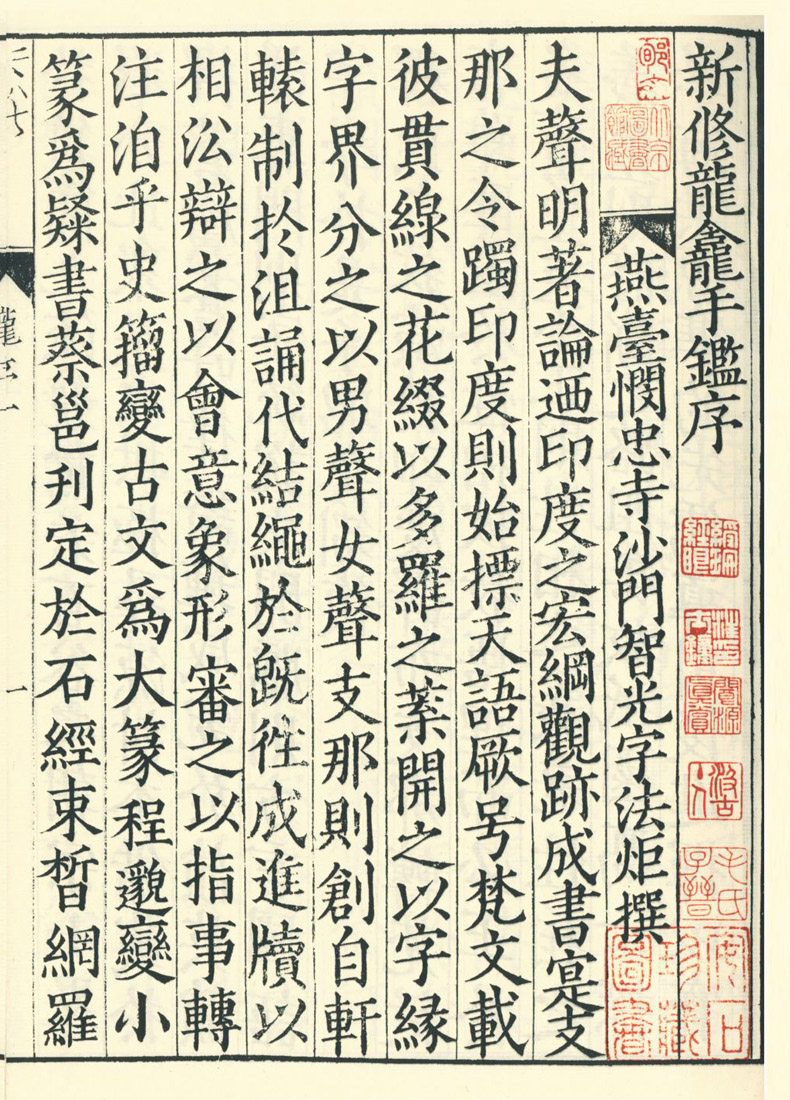 新修龍龕手鑑序
毛氏
子晉
燕臺憫忠寺沙門智光字法炬撰
夫聲明著論迺印度之宏綱觀跡成書寔支
那之令躅印度則始摽天語厥号梵文載
彼貫線之花綴以多羅之葉開之以字緣
字界分之以男聲女聲支那則創自軒
轅制於沮誦代結繩於旣徃成進牘以
相㳂辯之以會意象形審之以指事轉
注洎乎史籀變古文爲大篆程邈變小
篆爲隸書蔡邕刋定於石經束晳網羅
一